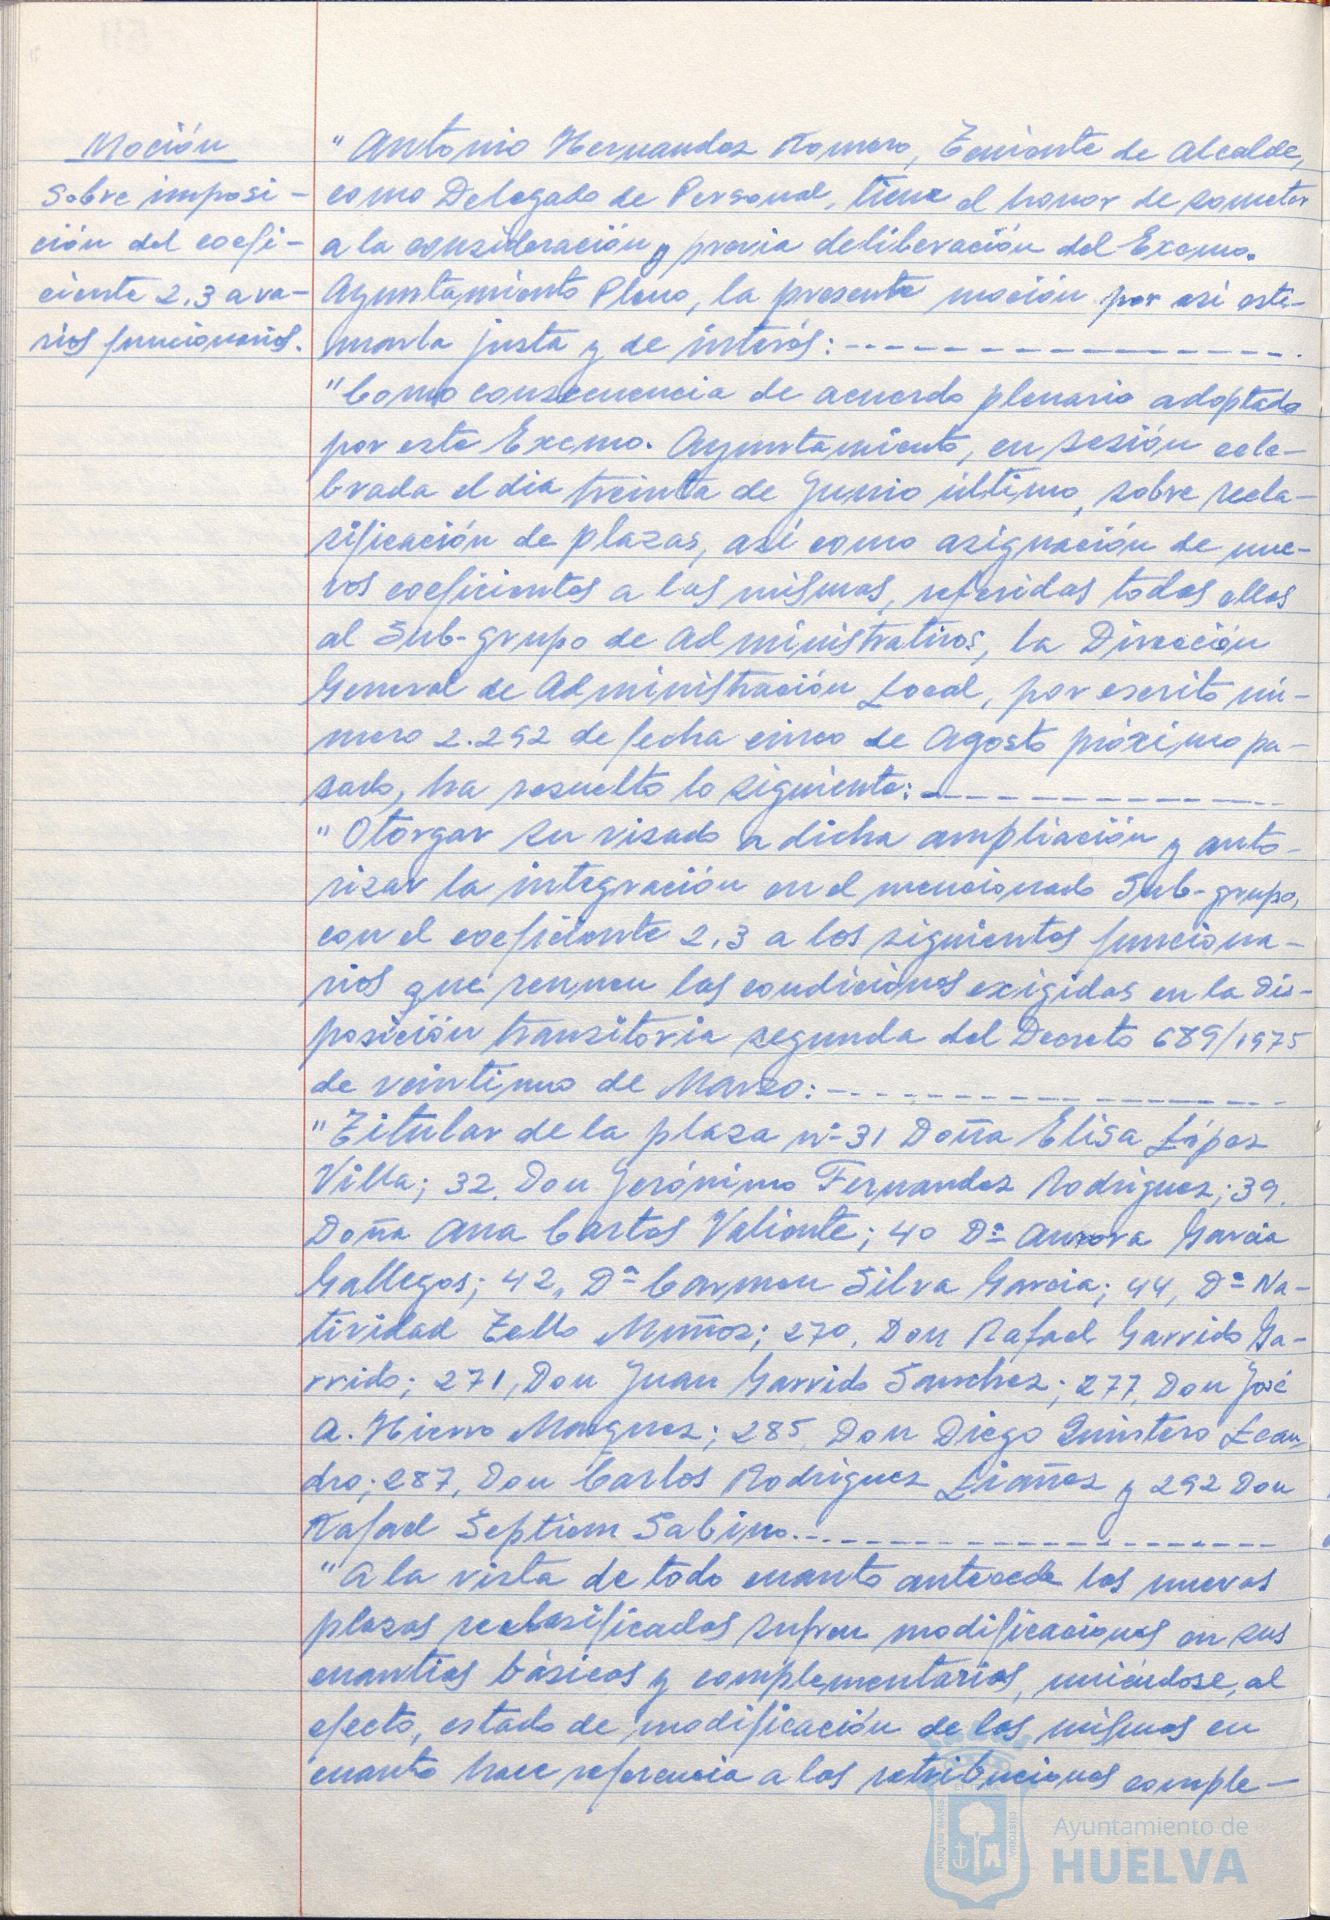 Moción
Sobre imposi-
ción del coefi-
ciente 2,3 a va-
rios funcionarios.
"Antonio Hernandez Romero, Teniente de Alcalde,
como Delegado de Personal, tiene el honor de someter
a la consideración y previa deliberación del Excmo.
Ayuntamiento Pleno, la presente moción por asi esti-
marla justa y de interés:
"Como consecuencia de acuerdo plenario adoptado
por este Excmo. Ayuntamiento, en sesión cele-
brada el dia treinta de Junio último, sobre recla-
sificación de plazas, así como asignación de nue-
vos coeficientes a las mismas, referidas todas ellas
al Sub-grupo de Administrativos, la Dirección
General de Administración Local, por escrito nú-
mero 2.292 de fecha cinco de Agosto próximo pa-
sado, ha resuelto lo siguiente:
"Otorgar su visado a dicha ampliación y auto-
rizar la integración en el mencionado Sub-grupo,
con el coeficiente 2,3 a los siguientes funciona-
rios que reunen las condiciones exigidas en la dis-
posición transitoria segunda del Decreto 689/1975
de veintiuno de Marzo:
"Titular de la plaza nº 31 Doña Elisa López
Villa; 32, Don Jerónimo Fernandez Rodriguez; 39,
Doña Ana Cartes Valiente; 40 Dª Aurora Garcia
Gallegos; 42, Dª Carmen Silva Garcia; 44, Dª Na-
tividad Tello Muñoz; 270, Don Rafael Garrido Ga-
rrido; 271, Don Juan Garrido Sanchez; 277, Don José
A. Hierro Marquez; 285, Don Diego Quintero Lean-
dro; 287, Don Carlos Rodriguez Liañez y 292 Don
Rafael Septiem Sabino.
"A la vista de todo cuanto antecede las nuevas
plazas reclasificadas sufren modificaciones en sus
cuantias básicas y complementarias, uniéndose, al
efecto, estado de modificación de las mismas en
cuanto hace referencia a las retribuciones comple-
Ayuntamiento de
HUELVA